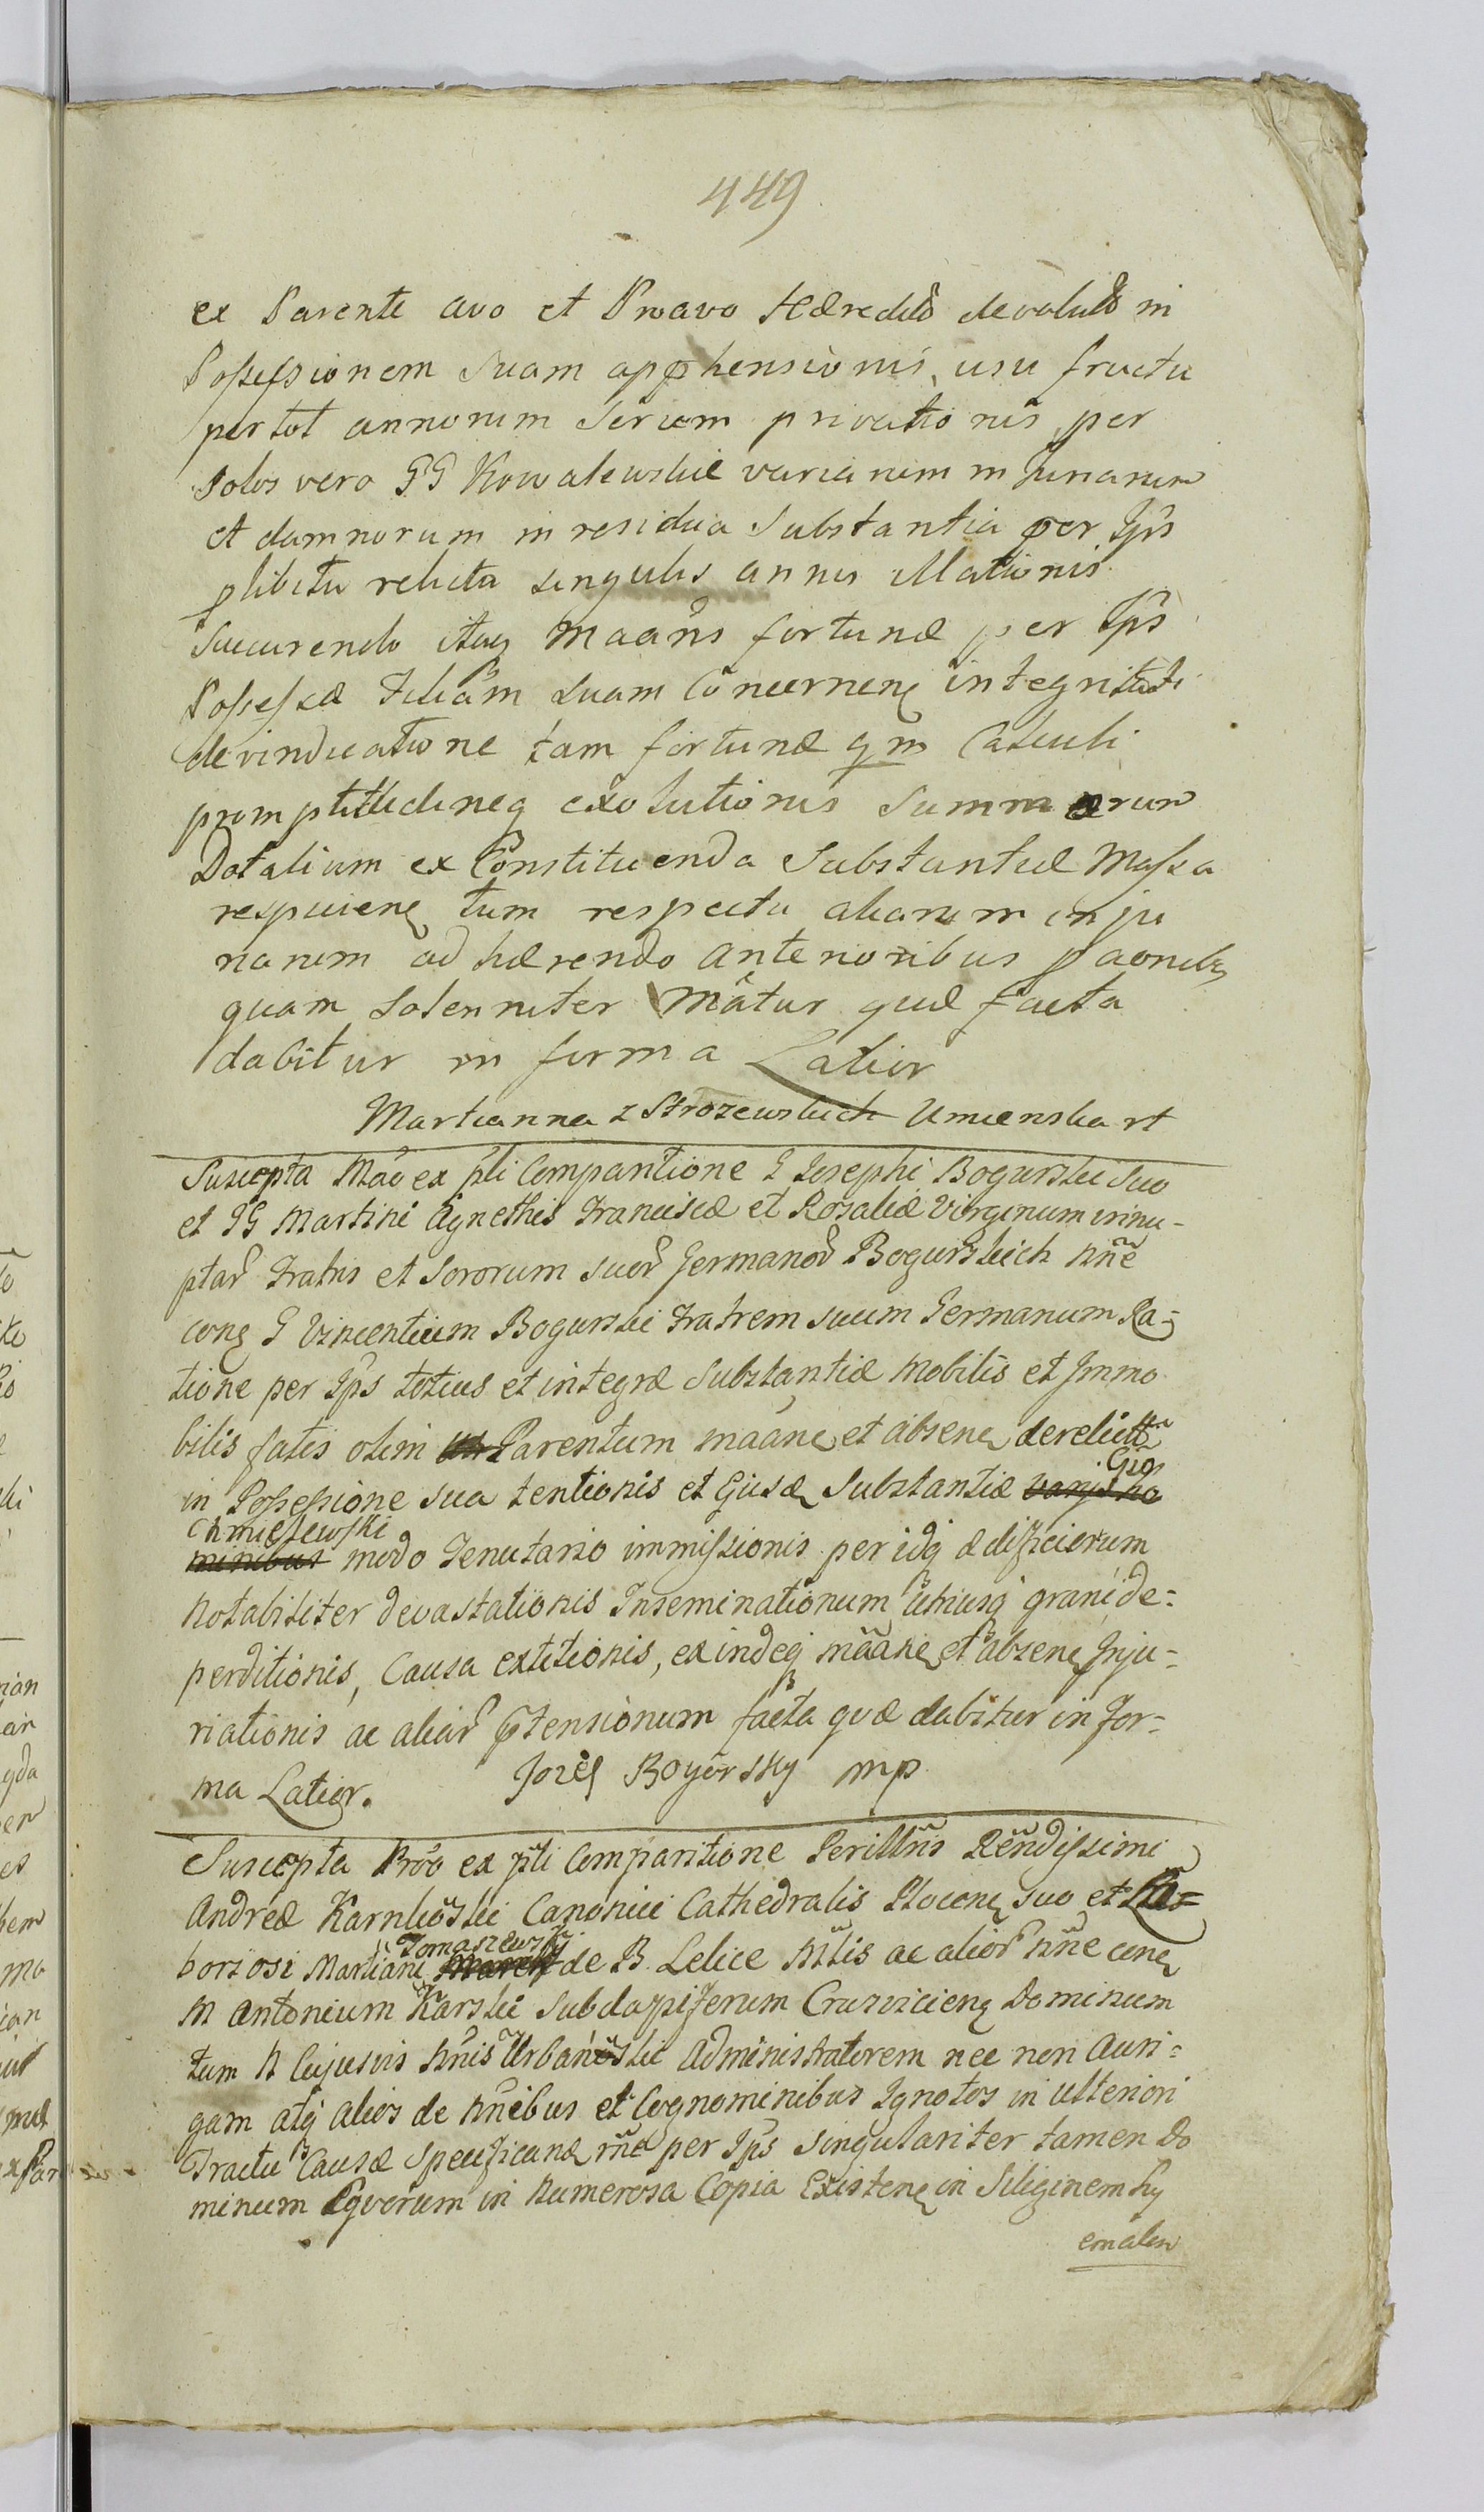 449
ex Parente avo et Proavo Hæredito devoluto in
Possessionem Suam apphensionis, usu fructu
per tot annorum Seriem privationis per
Solos vero GG Kowalewskie variarum injuriarum
et damnorum in residua Substantia per Ips
plibitu relicta singulis annis illationis
Succurendo itaq maans fortunæ per Ips
Possessæ Filiam Suam Concernene integritati
devindicatione tam fortunæ qm Calculi
promptitudineq exolutionis Summarum
Dotalium ex Constituenda Substantiæ Massa
respuiene tum respectu aliarum inju
riarum ad hærendo anterioribus paonibs
quam Solenniter Matur quæ facta
dabitur in forma Latior
Martianna z Strozewskich Umienska rt
Suscepta Mao ex pti Comparitione G Josephi Bogurski Suo
et GG Martini Agnethis Franciscæ et Rozaliæ Virginum innu-
ptar Fratris et Sororum suor Germanor Bogurskich nne
cong G Vincentium Bogurski Fratrem suum Germanum Ra-
tione per Ips totius et integræ Substantiæ Mobilis et Immo
bilis fatis olim Parentum maane et absene derelictæ
in Possessione sua tentionis et Ejusd Substantiæ varijs no Gso
Chmielewski
minibus modo Tenutario immissionis per idq ædificiorum
Notabiliter devastationis Inseminationum utriusq grani de-
perditionis, Causa extitionis, exindeq maane et absene Inju-
riationis ac aliar ptensionum facta quæ dabitur in for-
ma Latior. Jozef Bogorsky mp
Suscepta Pro ex pti Comparitione Perillris Rendissimi
Andreæ Karnkoski Canonici Cathedralis Plocene suo et La-
Tomaszewski
boriosi Martiani de B. Lelice Sttis ac alior nne cone
M Antonium Karski Subdapiferum Cruszviciene Dominum
tum N Cujusvis nnis Urbanoski Administratorem nec non Auri-
gam atq alios de nnibus et Cognominibus Ignotos in ulteriori
Tractu Causæ Specificand rne per Ips Singulariter tamen Do
minum Eqvorum in Numerosa Copia Existene in Siliginem hy
emalem